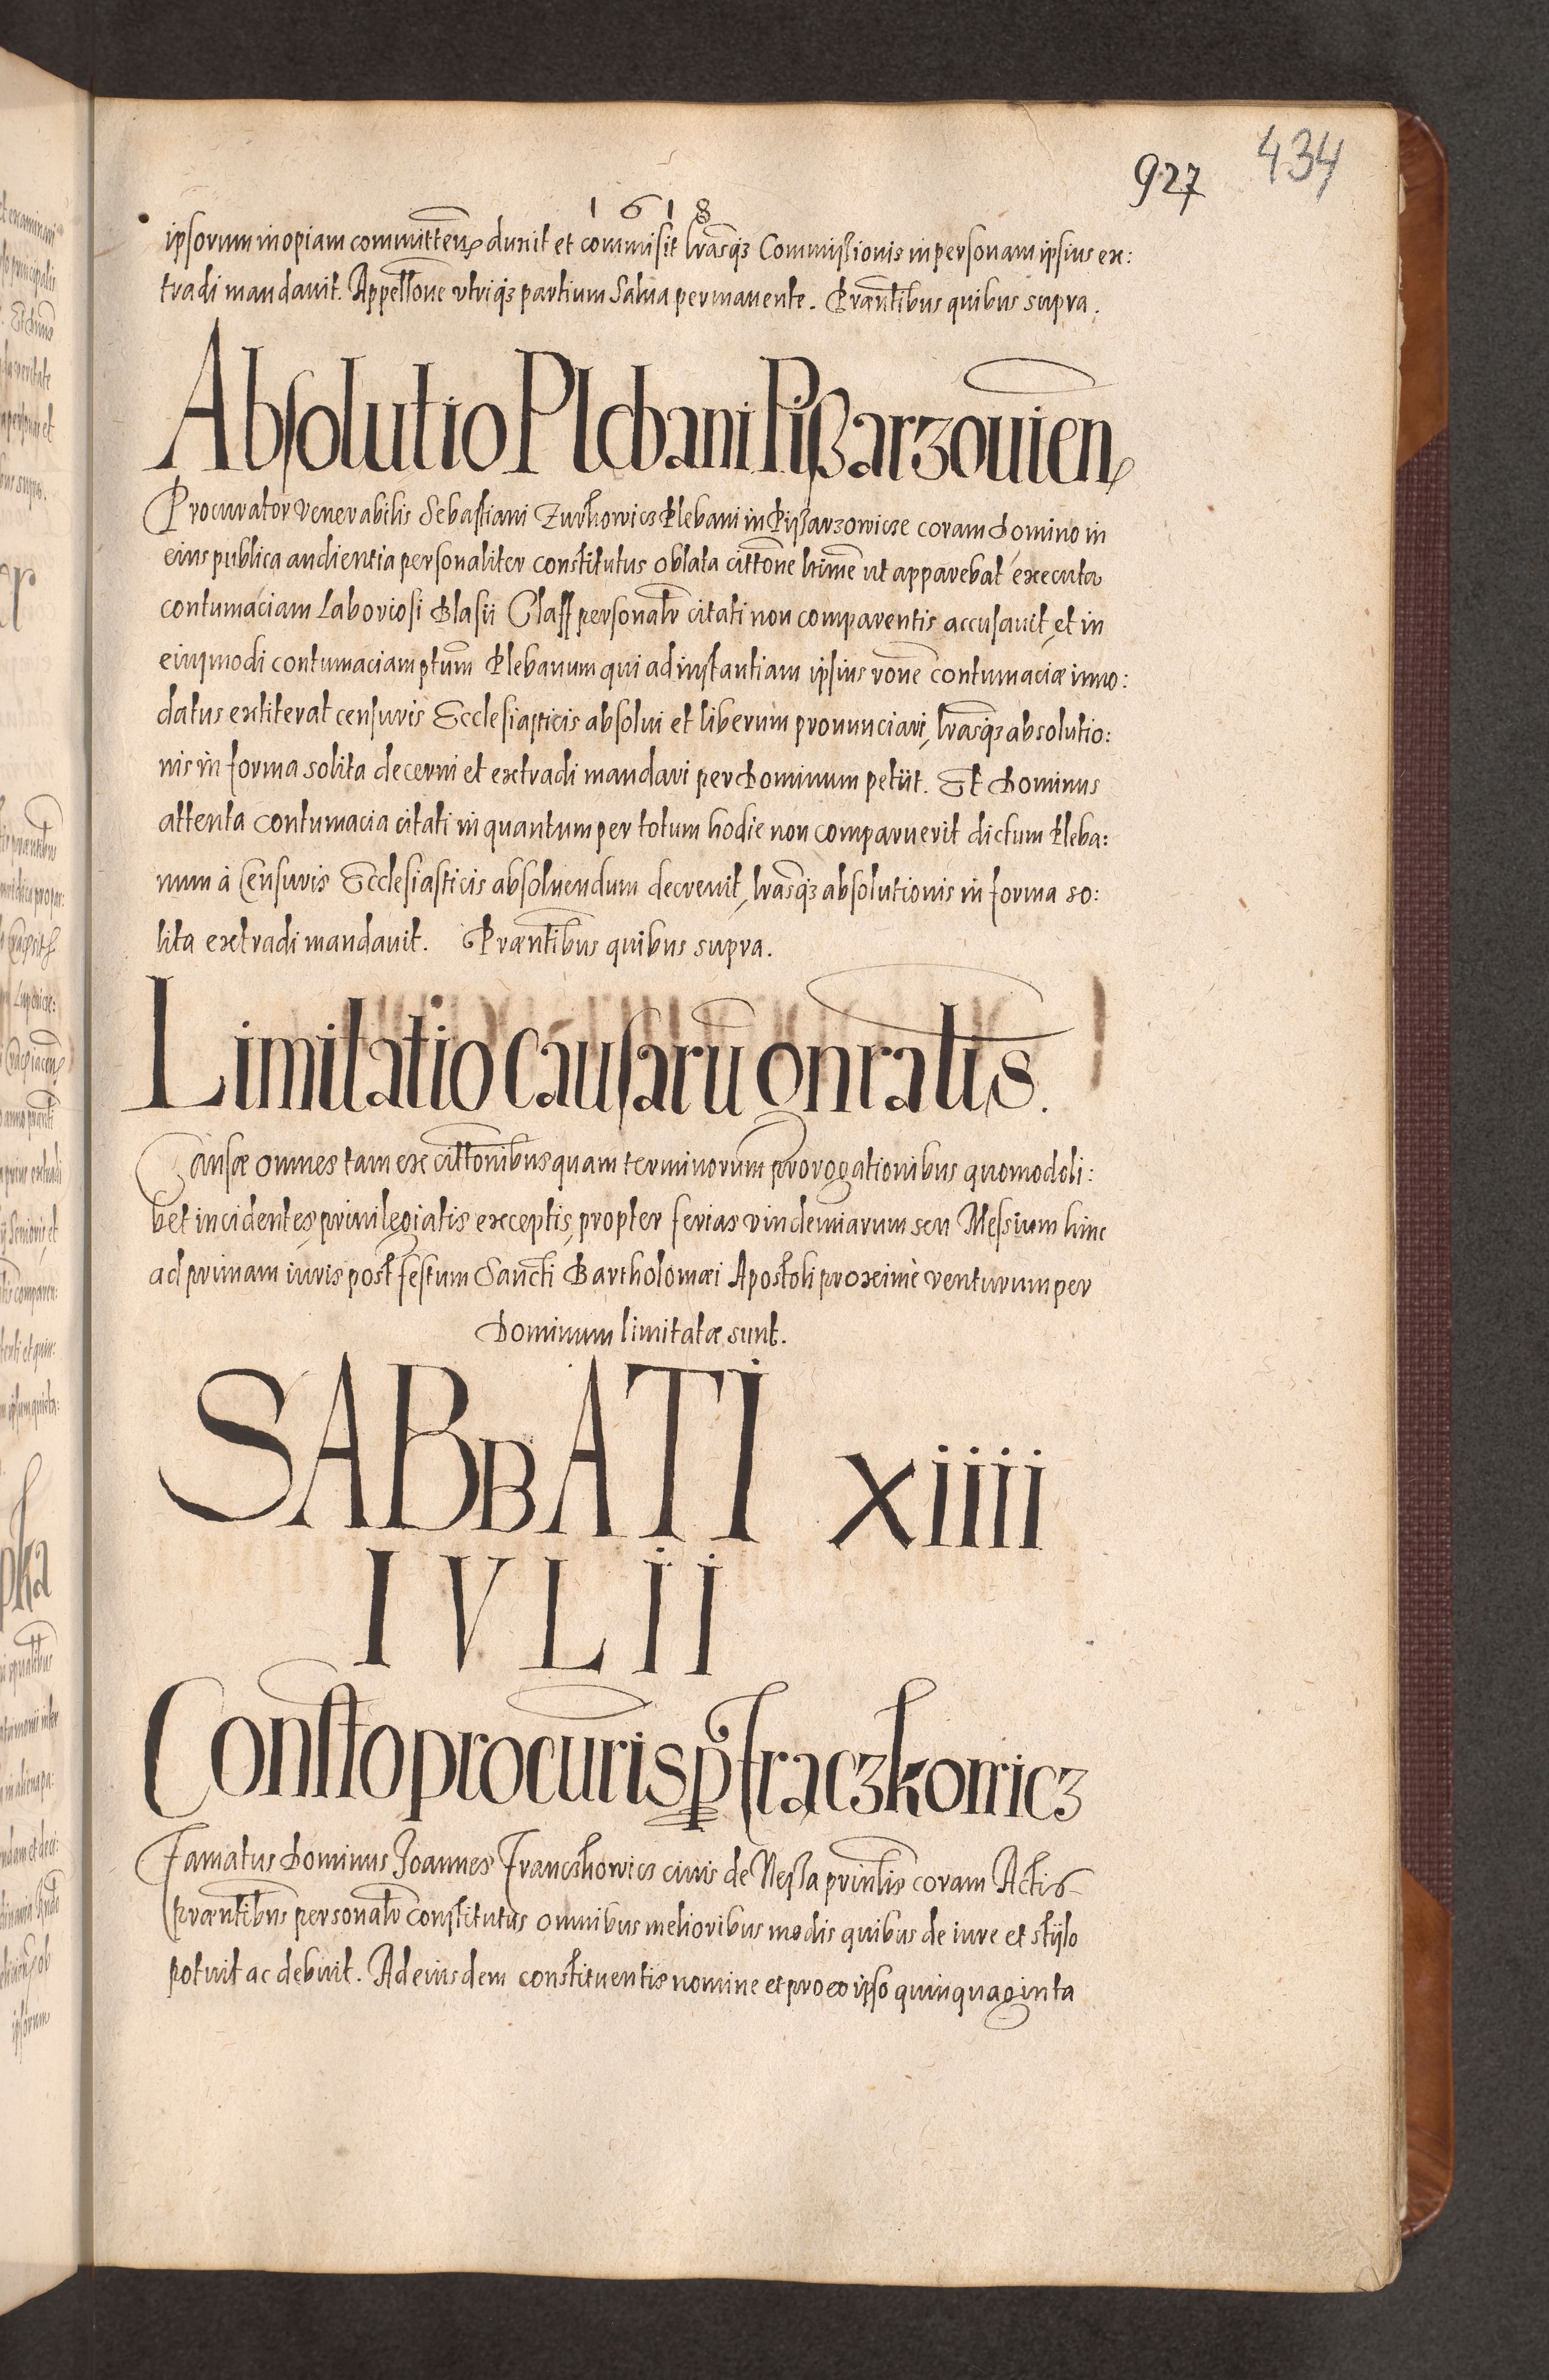 434
927
1618
ipsorum inopiam committen duxit et commisit lrasq3 Commissionis in personam ipsius ex:
tradi mandavit. Appellõne utriq3 partium salua permanente. Præntibus quibus supra.
Absolutio Plebani Pißarzouien
Procurator Venerabilis Sebastiani Zurkowicz Plebani in Pißarzowicze coram Domino in
eius publica audientia personaliter constitutus oblata cittõne ltime ut apparebat executa
contumaciam Laboriosi Blasii Claſſ personalr citati non comparentis accusauit, et in
eiusmodi contumaciam ptum Plebanum qui ad instantiam ipsius rõne contumaciæ inno:
datus extiterat censuris Ecclesiasticis absolui et liberum pronunciari, lrasq3 absolutio:
nis in forma solita decerni et extradi mandari per Dominum petiit. Et Dominus
attenta contumacia citati in quantum per totum hodie non comparuerit dictum Pleba:
num à Censuris Ecclesiasticis absoluendum decreuit, lrasq3 absolutionis in forma so:
lita extradi mandauit. Præntibus quibus supra.
Limitatio causarũ gnralis.
Causæ omnes tam ex cittõnibus quam terminorum prorogationibus quomodoli:
bet incidentes, priuilegiatis exceptis, propter ferias vindemiarum seu Messium hinc
ad primam iuris post festum Sancti Bartholomæi Apostoli proximè venturum per
Dominum limitatæ sunt.
SABBATI xiiii
IVLII
Constto procuris p Fraczkowicz
Famatus Dominus Joannes Franczkowicz ciuis de Neſſa prinlis coram Actis
Præntibus personalr constitutus omnibus melioribus modis quibus de iure et stylo
potuit ac debuit. Ad eiusdem constituentis nomine et pro eo ipso quinquaginta